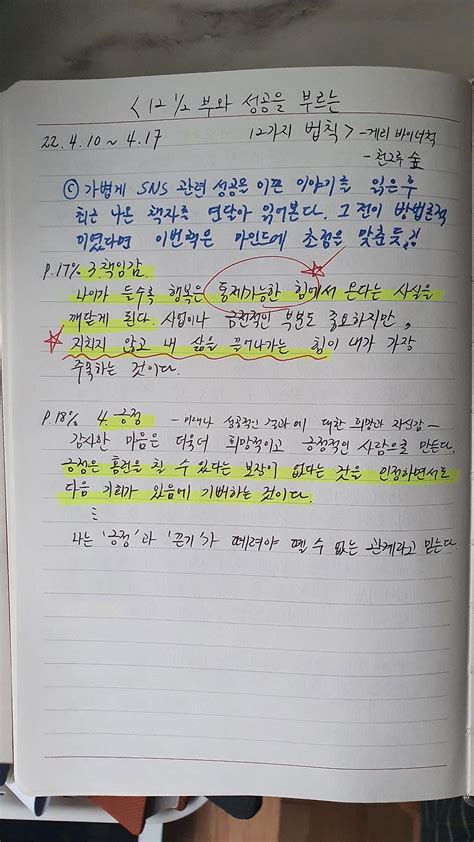 < 12 ½ 부와 성공을 부르는
22. 4. 10 ~ 4. 17 12가지 법칙 > - 게리 바이너척
- 천그루 숲
ⓒ 가볍게 SNS 관련 성공을 이룬 이야기를 읽은 후
최근 나온 책자를 연달아 읽어본다. 그 전이 방법론적
이였다면 이번책은 마인드에 초점을 맞춘듯,,!!
P.17% 3. 책임감.
나이가 들수록 행복은 통제가능한 힘에서 온다는 사실을
깨닫게 된다. 사업이나 금전적인 부분도 중요하지만,
지치지 않고 내 삶을 끌어나가는 힘이 내가 가장
주목하는 것이다.
P.18% 4. 긍정 - 미래나 성공적인 결과에 대한 희망과 자신감 -
감사한 마음은 더욱더 희망적이고 긍정적인 사람으로 만든다.
긍정은 홈런을 칠 수 있다는 보장이 없다는 것을 인정하면서도
다음 기회가 있음에 기뻐하는 것이다.
⋮
나는 '긍정'과 '끈기'가 떼려야 뗄 수 없는 관계라고 믿는다.